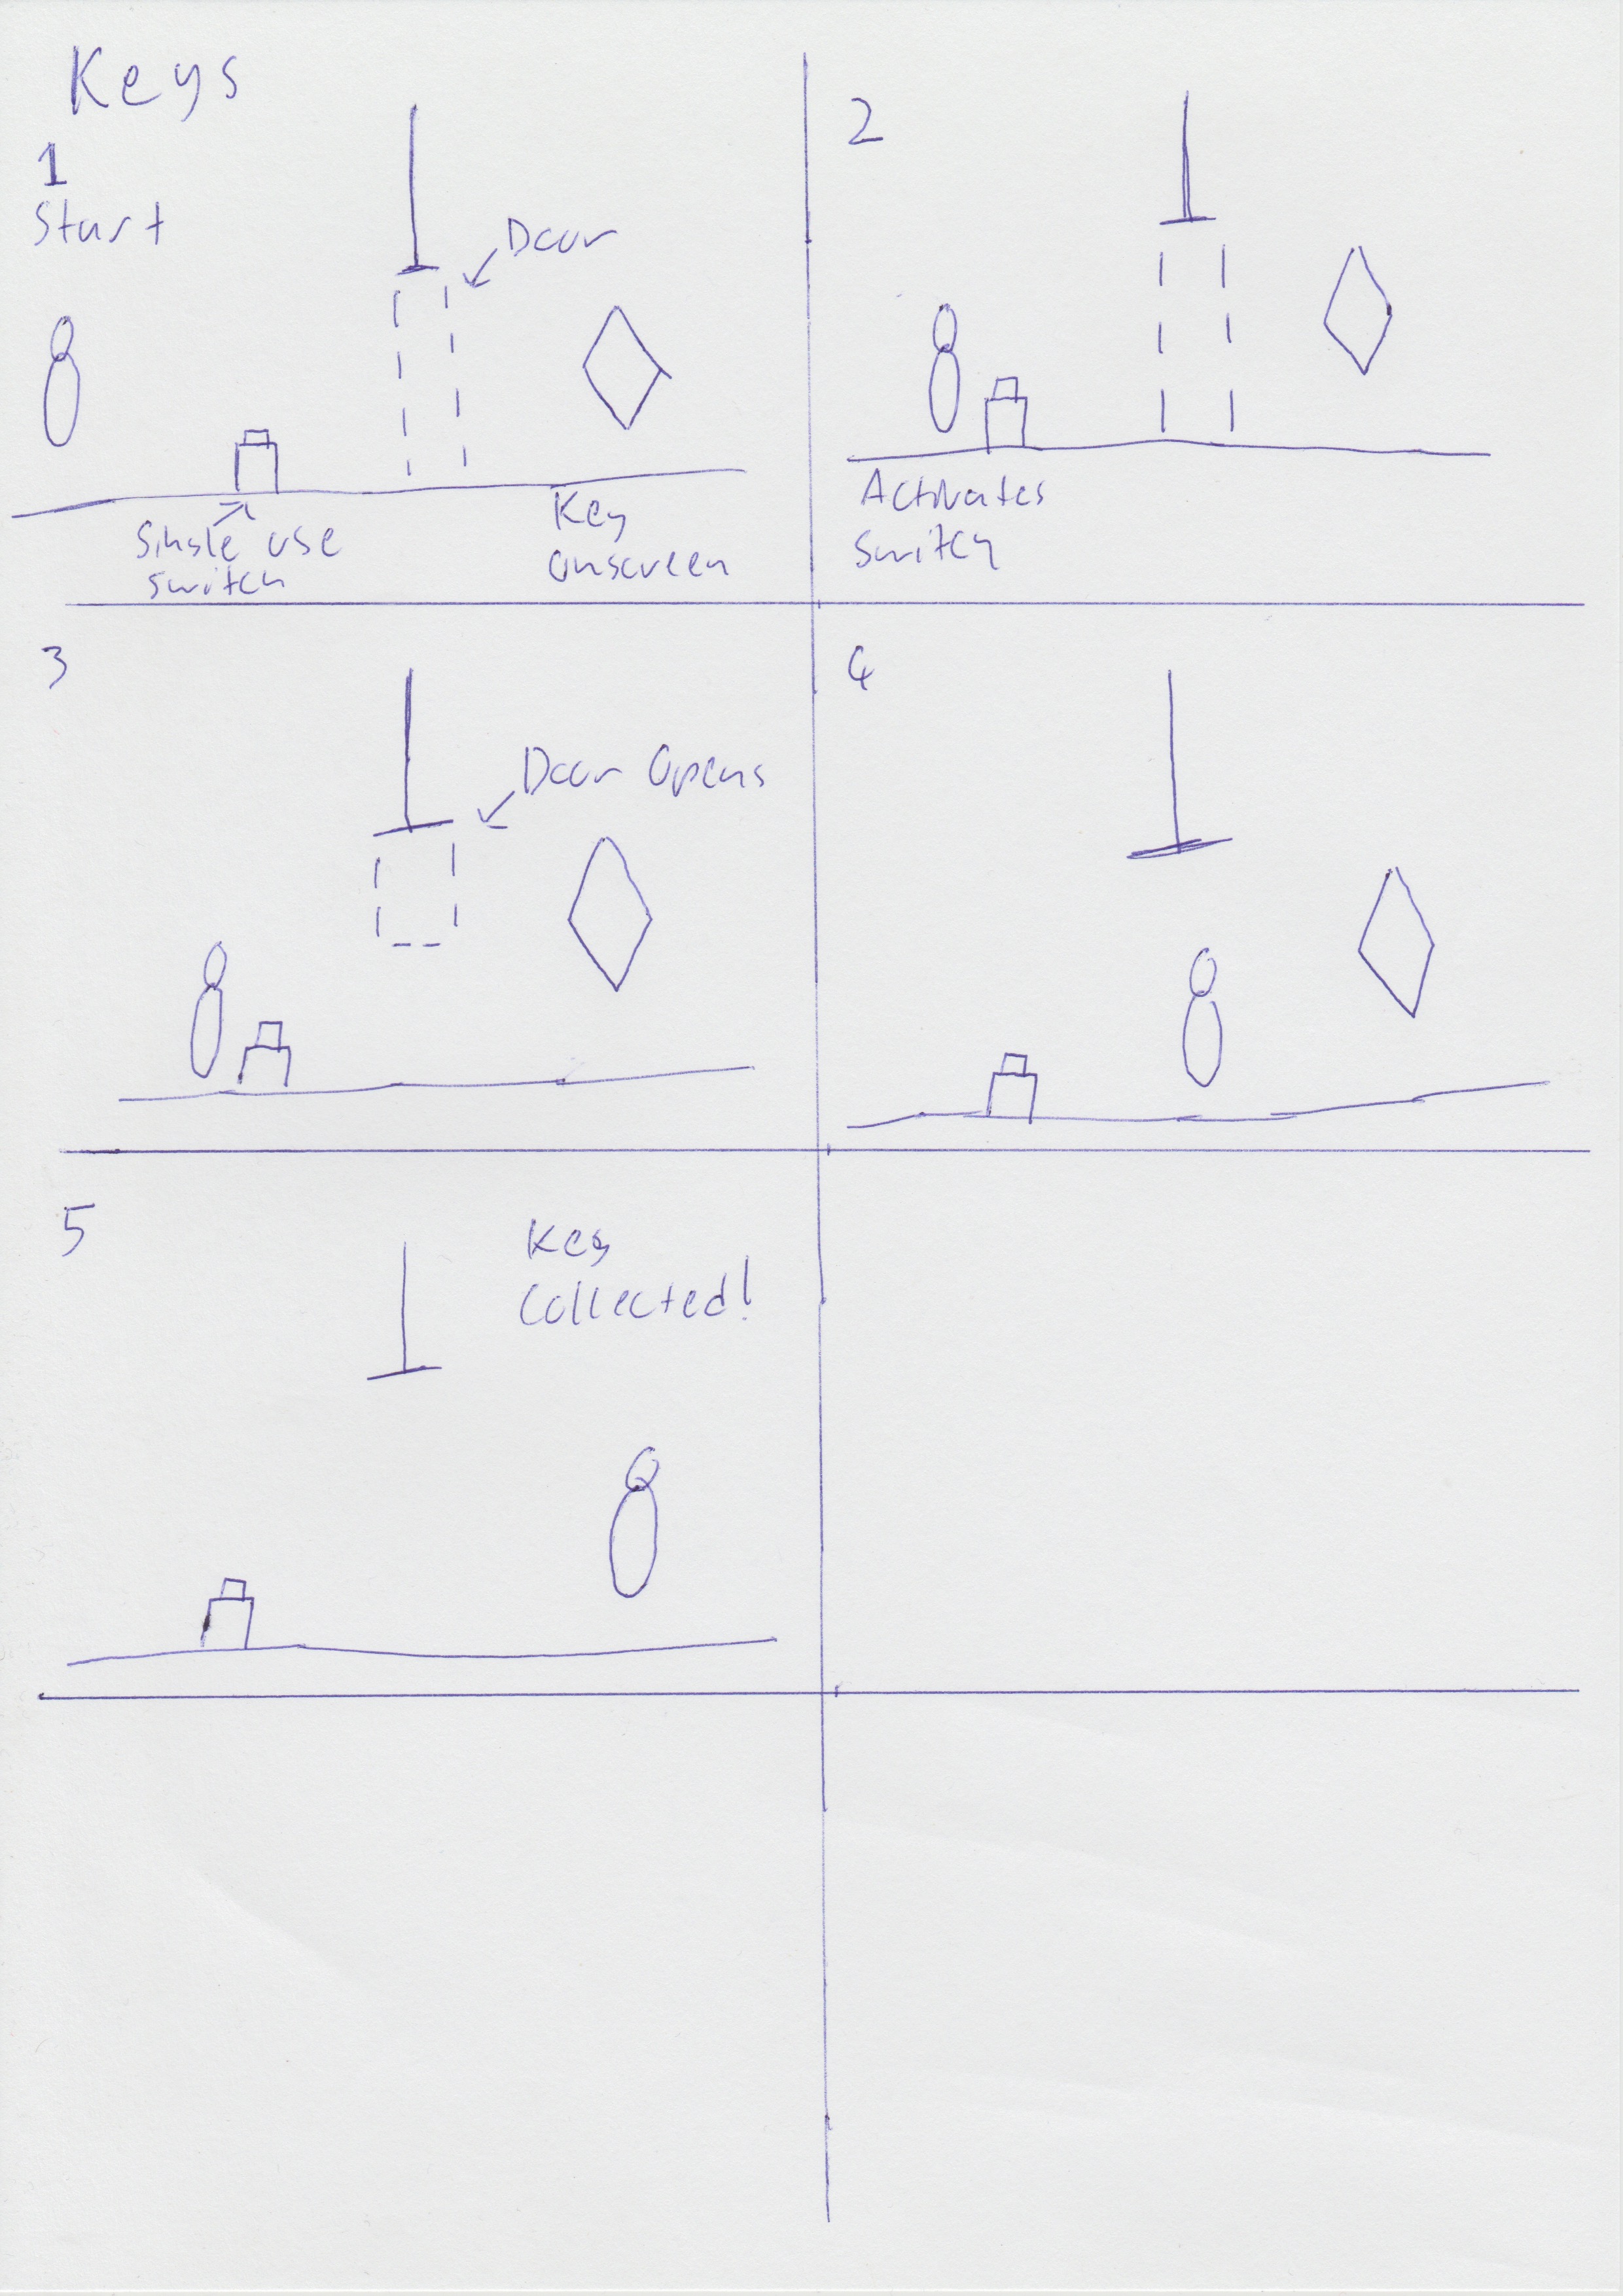 Keys
1
Start
Door
Single use
switch
Key
onscreen
2
Activates
Switch
3
Door Opens
4
5
Key
Collected!